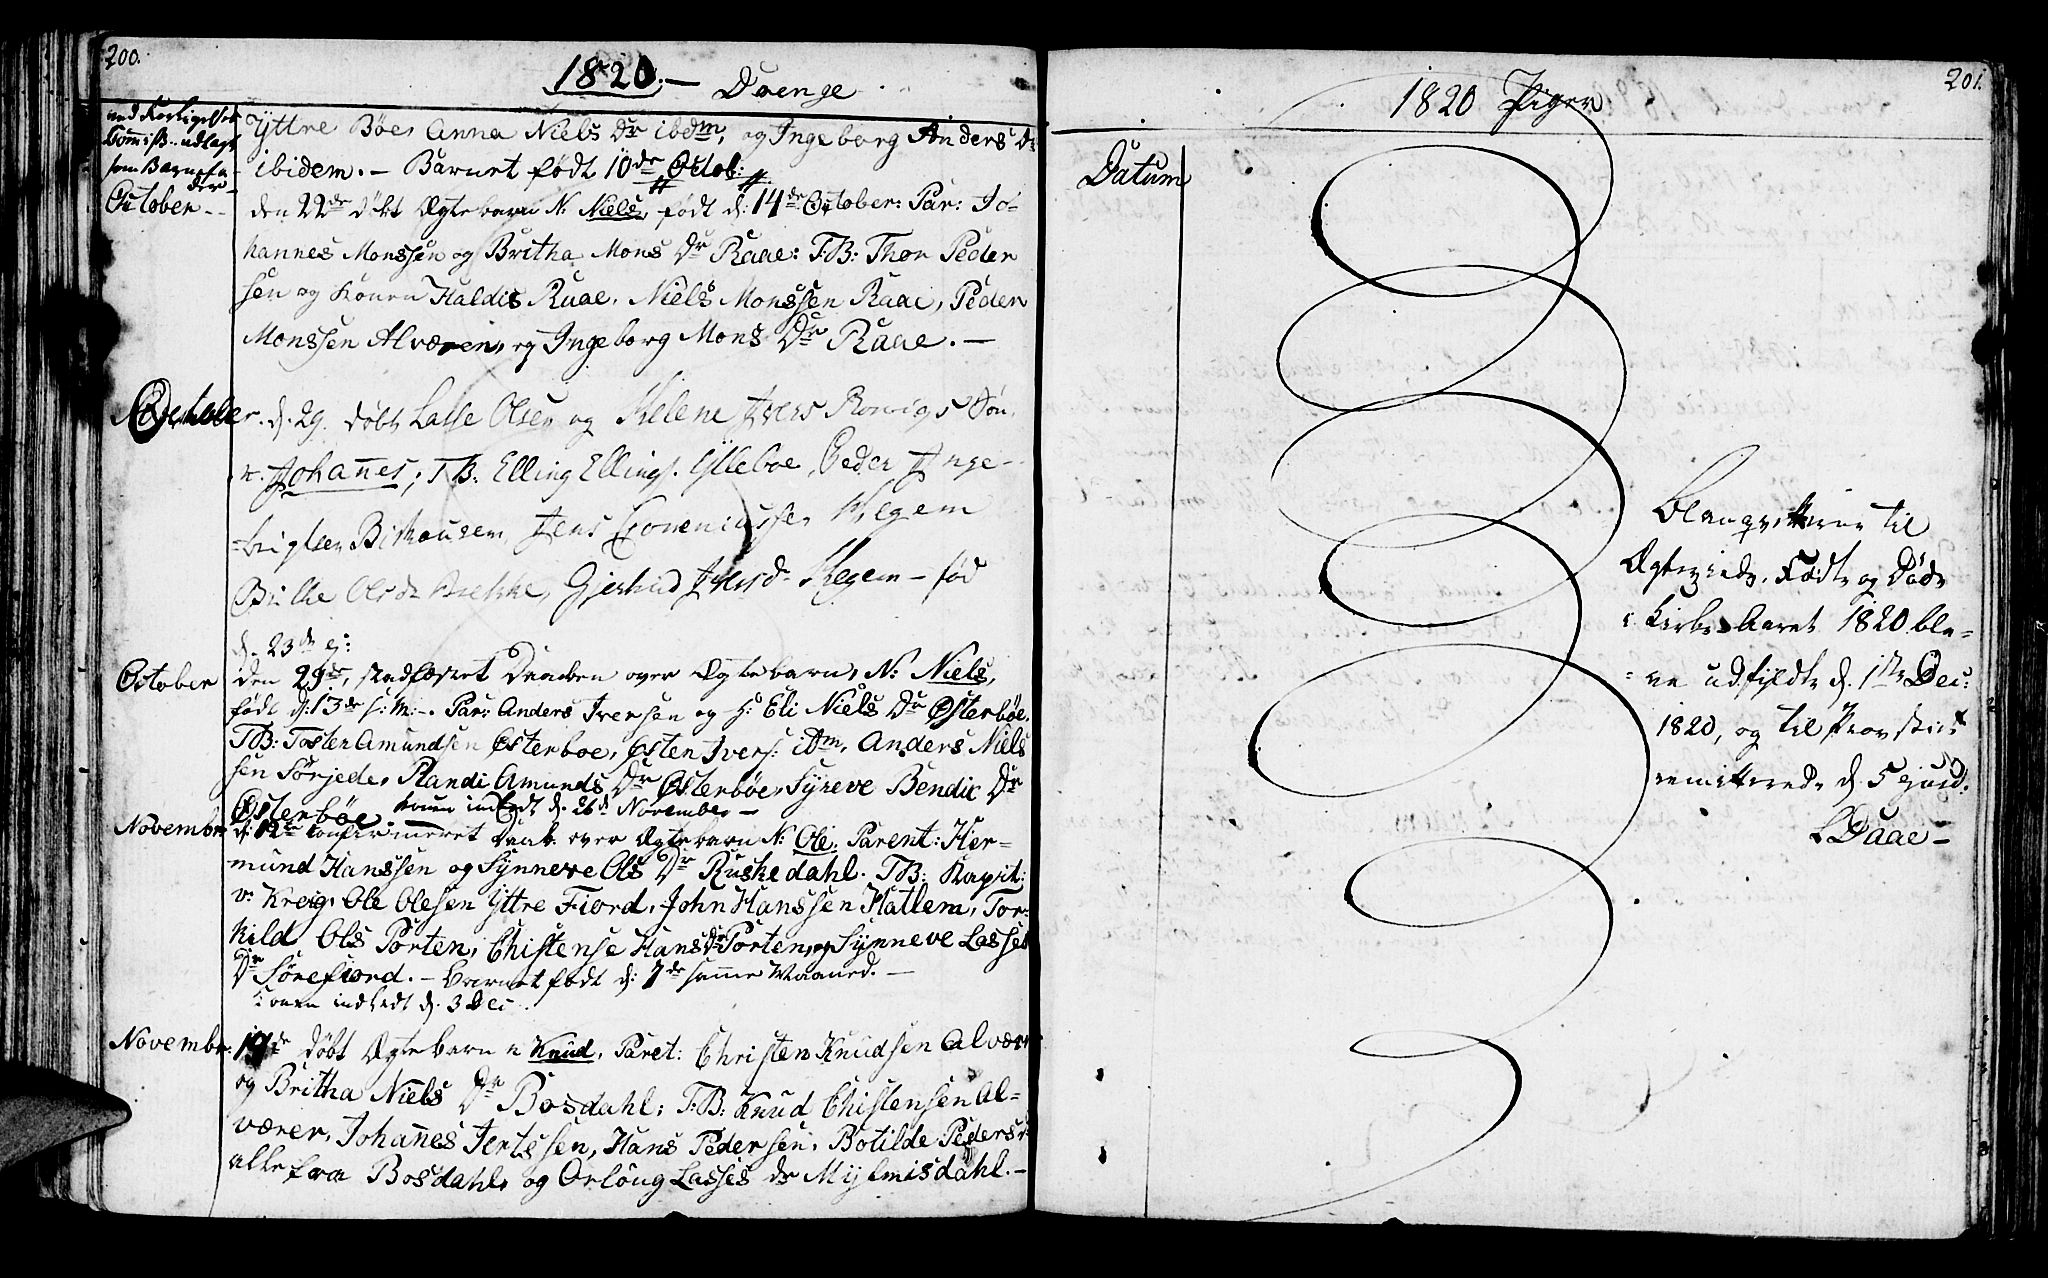 200.
1820. — Drenge
ved Forligelses
Commiss. udlagt
som Barnefa-
der —
Yttre Böe, Anna Niels Dr ibdm, og Ingeborg Anders Dr
ibidem. — Barnet født 10de Octob:
October --
den 22de døbt Ægtebarn N: Niels, født d: 14de October: Par: Jo-
hannes Monssen og Britha Mons Dr Raae: T.B: Thor Peder
sen og Konen Haldis Raae, Niels Monssen Raae, Peder
Monssen Alværen, og Ingeborg Mons Dr Raae. —
October. d. 29. døbt Lasse Olsen og Helene Ivers Søn,
n. Johannes; T.B: Elling Ellings. Ylleboe, Peder Inge-
Jens Corneniussen Hegem
Olsdr Brekke, Gjertrud Iversd. Hegem — fød
d. 23de ej:
October
den 29de, stadfæstet Daaben over Ægtebarn, N: Niels,
født d: 13de s: M: —. Par: Anders Iversen og H: Eli Niels Dr Østerböe.
T.B: Tosten Amundsen Østerboe, Østen Ivers: ibm, Anders Niels
sen Sörjede, Randi Amunds Dr Østerböe, Syneve Bendic Dr
Østerböe. Konen indledt d. 26de November —
Novembr:
d: 12te confirmeret Daab. over Ægtebarn N: Ole. Parent: Her-
mund Hanssen og Synneve Ols Dr Ruskedahl. T.B: Kapit:
v: Kreig, Ole Olesen Yttre Fiord, John Hanssen Hatlem, Tor-
kild Ols Porten, Christense Hans Dr Porten, og Synneve Lasses
Dr Sørefiord. — Barnet født d: 7de samme Maaned. —
Konen indledt d. 3 Dec
Novembr:
19de døbt Ægtebarn n Knud, Paret: Christen Knudsen Alvær
og Britha Niels Dr Bosdahl; T:B: Knud Christensen Al-
værer, Johannes Jertssen, Hans Pedersen, Botilde Peders
alle fra Bosdahl, og Orloug Lasses dr Myklmisdahl. —
201.
1820 Piger
Datum
Blanqvetterne til
Ægteviede, Födte og Döde
i Kirke Aaret 1820 ble-
ve udfyldte d. 1ste Dec:
1820, og til Provstiet
remitterede d. 5 ejusd.
LDaae —